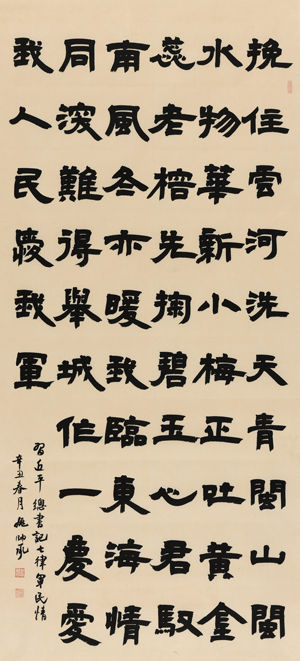 挽住雲河洗天青閩山閩
水物華新小梅正吐黃金
蕊老榕先掬碧玉心君馭
南風冬亦暖我臨東海情
同深難得舉城作一慶愛
我人民愛我軍
習近平總書記七律軍民情
辛丑春月姚